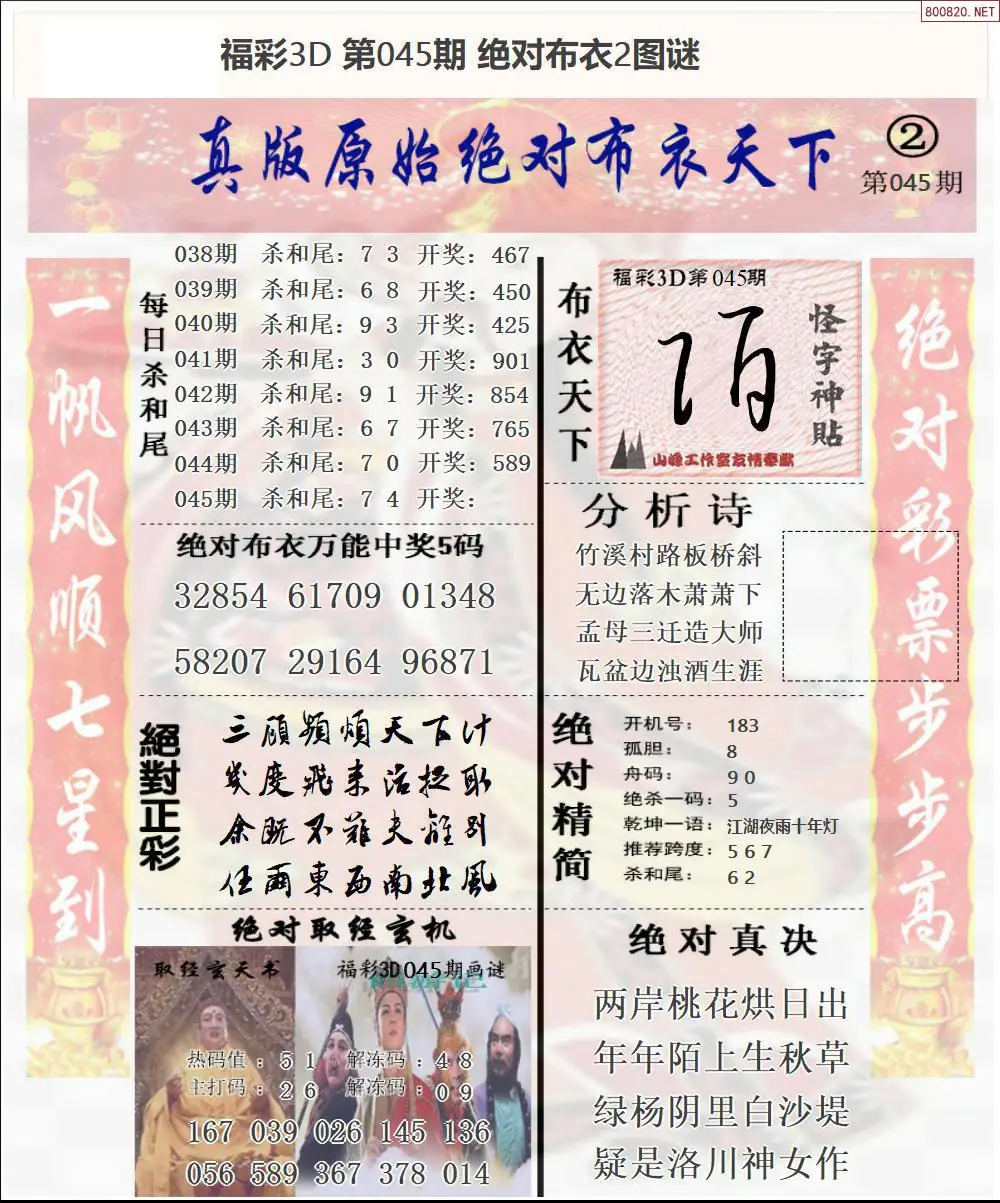 800820.NET
福彩3D 第045期 绝对布衣2图谜
真版原始绝对布衣天下
②
第045期
一帆风顺七星到
每日杀和尾
038期 杀和尾: 7 3 开奖: 467
039期 杀和尾: 6 8 开奖: 450
040期 杀和尾: 9 3 开奖: 425
041期 杀和尾: 3 0 开奖: 901
042期 杀和尾: 9 1 开奖: 854
043期 杀和尾: 6 7 开奖: 765
044期 杀和尾: 7 0 开奖: 589
045期 杀和尾: 7 4 开奖:
绝对布衣万能中奖5码
32854 61709 01348
58207 29164 96871
絕對正彩
三顾频烦天下计
几度飛来活捉
余既不難夫離别
任爾東西南北風
绝对取经玄机
取经玄天书
福彩3D045期画谜
热码值:51 解冻码:48
主打码:26 解冻码:09
167 039 026 145 136
056 589 367 378 014
布衣天下
福彩3D第045期
怪字神貼
山峰工作室友情奉献
分析诗
竹溪村路板桥斜
无边落木萧萧下
孟母三迁造大师
瓦盆边浊酒生涯
绝对精简
开机号: 183
孤胆: 8
舟码: 90
绝杀一码: 5
乾坤一语: 江湖夜雨十年灯
推荐跨度: 567
杀和尾: 62
绝对真决
两岸桃花烘日出
年年陌上生秋草
绿杨阴里白沙堤
疑是洛川神女作
绝对彩票步步高